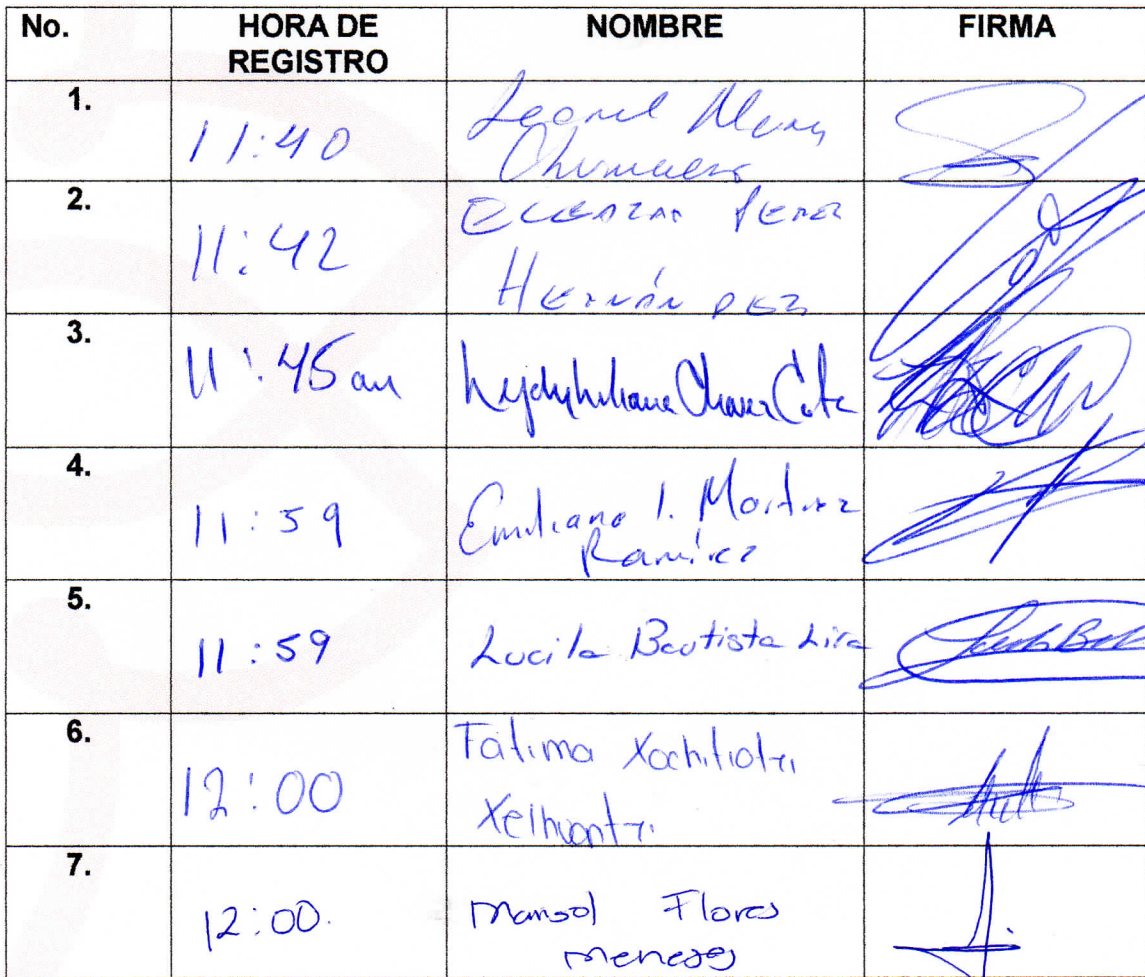 No. HORA DE REGISTRO NOMBRE FIRMA
1. 11:40 Leonel Mena
Chumacero
2. 11:42 ELEAZAR PEREZ
HERNÁNDEZ
3. 11:45 am Chavez
4. 11:59 Emiliano I. Martinez
Ramírez
5. 11:59 Lucila Bautista Lira
6. 12:00 Fátima Xochitiotzi
Xelhuantzi
7. 12:00. Marisol Flores
Meneses